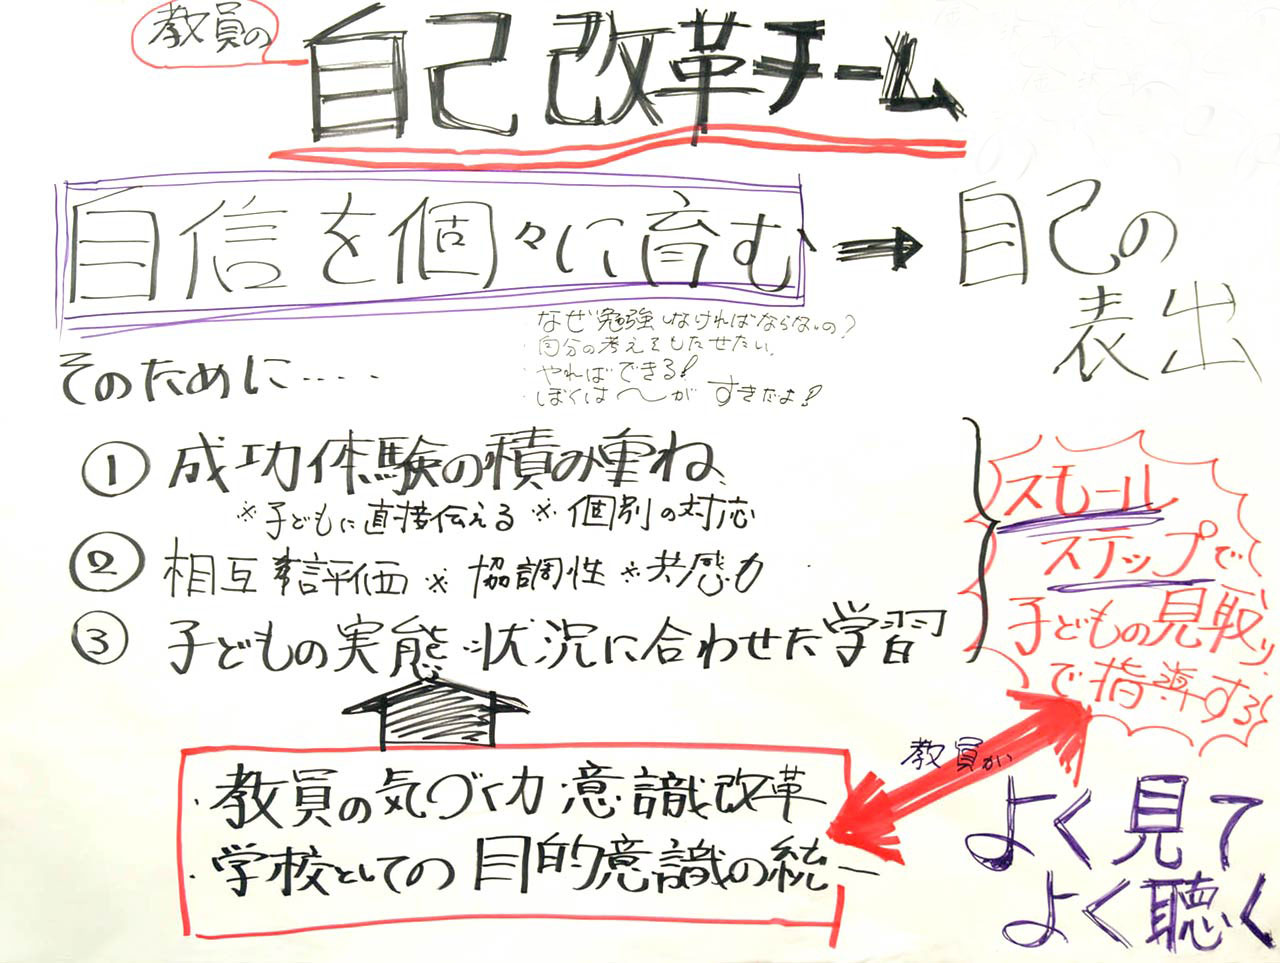 教員の
自己改革チーム
自信を個々に育む ➡ 自己の
表出
・なぜ勉強しなければならないの?
・自分の考えをもたせたい。
・やればできる!
・ぼくは〜がすきだよ!
そのために‥‥‥
① 成功体験の積み重ね
※子どもに直接伝える ※個別の対応
② 相互評価 ※協調性 ※共感力
③ 子どもの実態・状況に合わせた学習
スモール
ステップで
子どもの見取り
で指導する
・教員の気づく力 意識改革
・学校としての目的意識の統一
教員が
よく見て
よく聴く